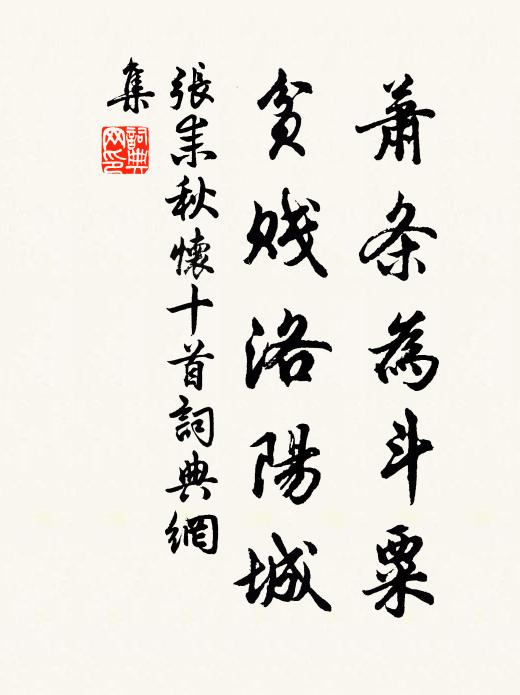 蕭条為斗粟
貧賎洛陽城
張耒秋懷十首詞典網
集
詞典
网印